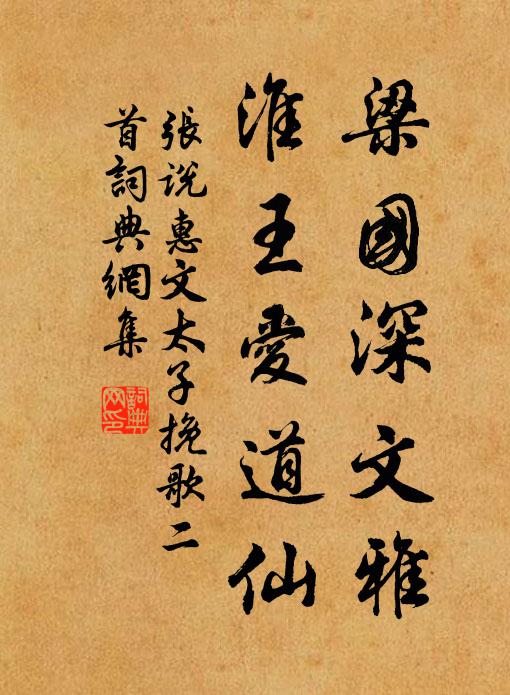 梁國深文雅
淮王愛道仙
張說惠文太子挽歌二
首詞典網集
詞典
网印